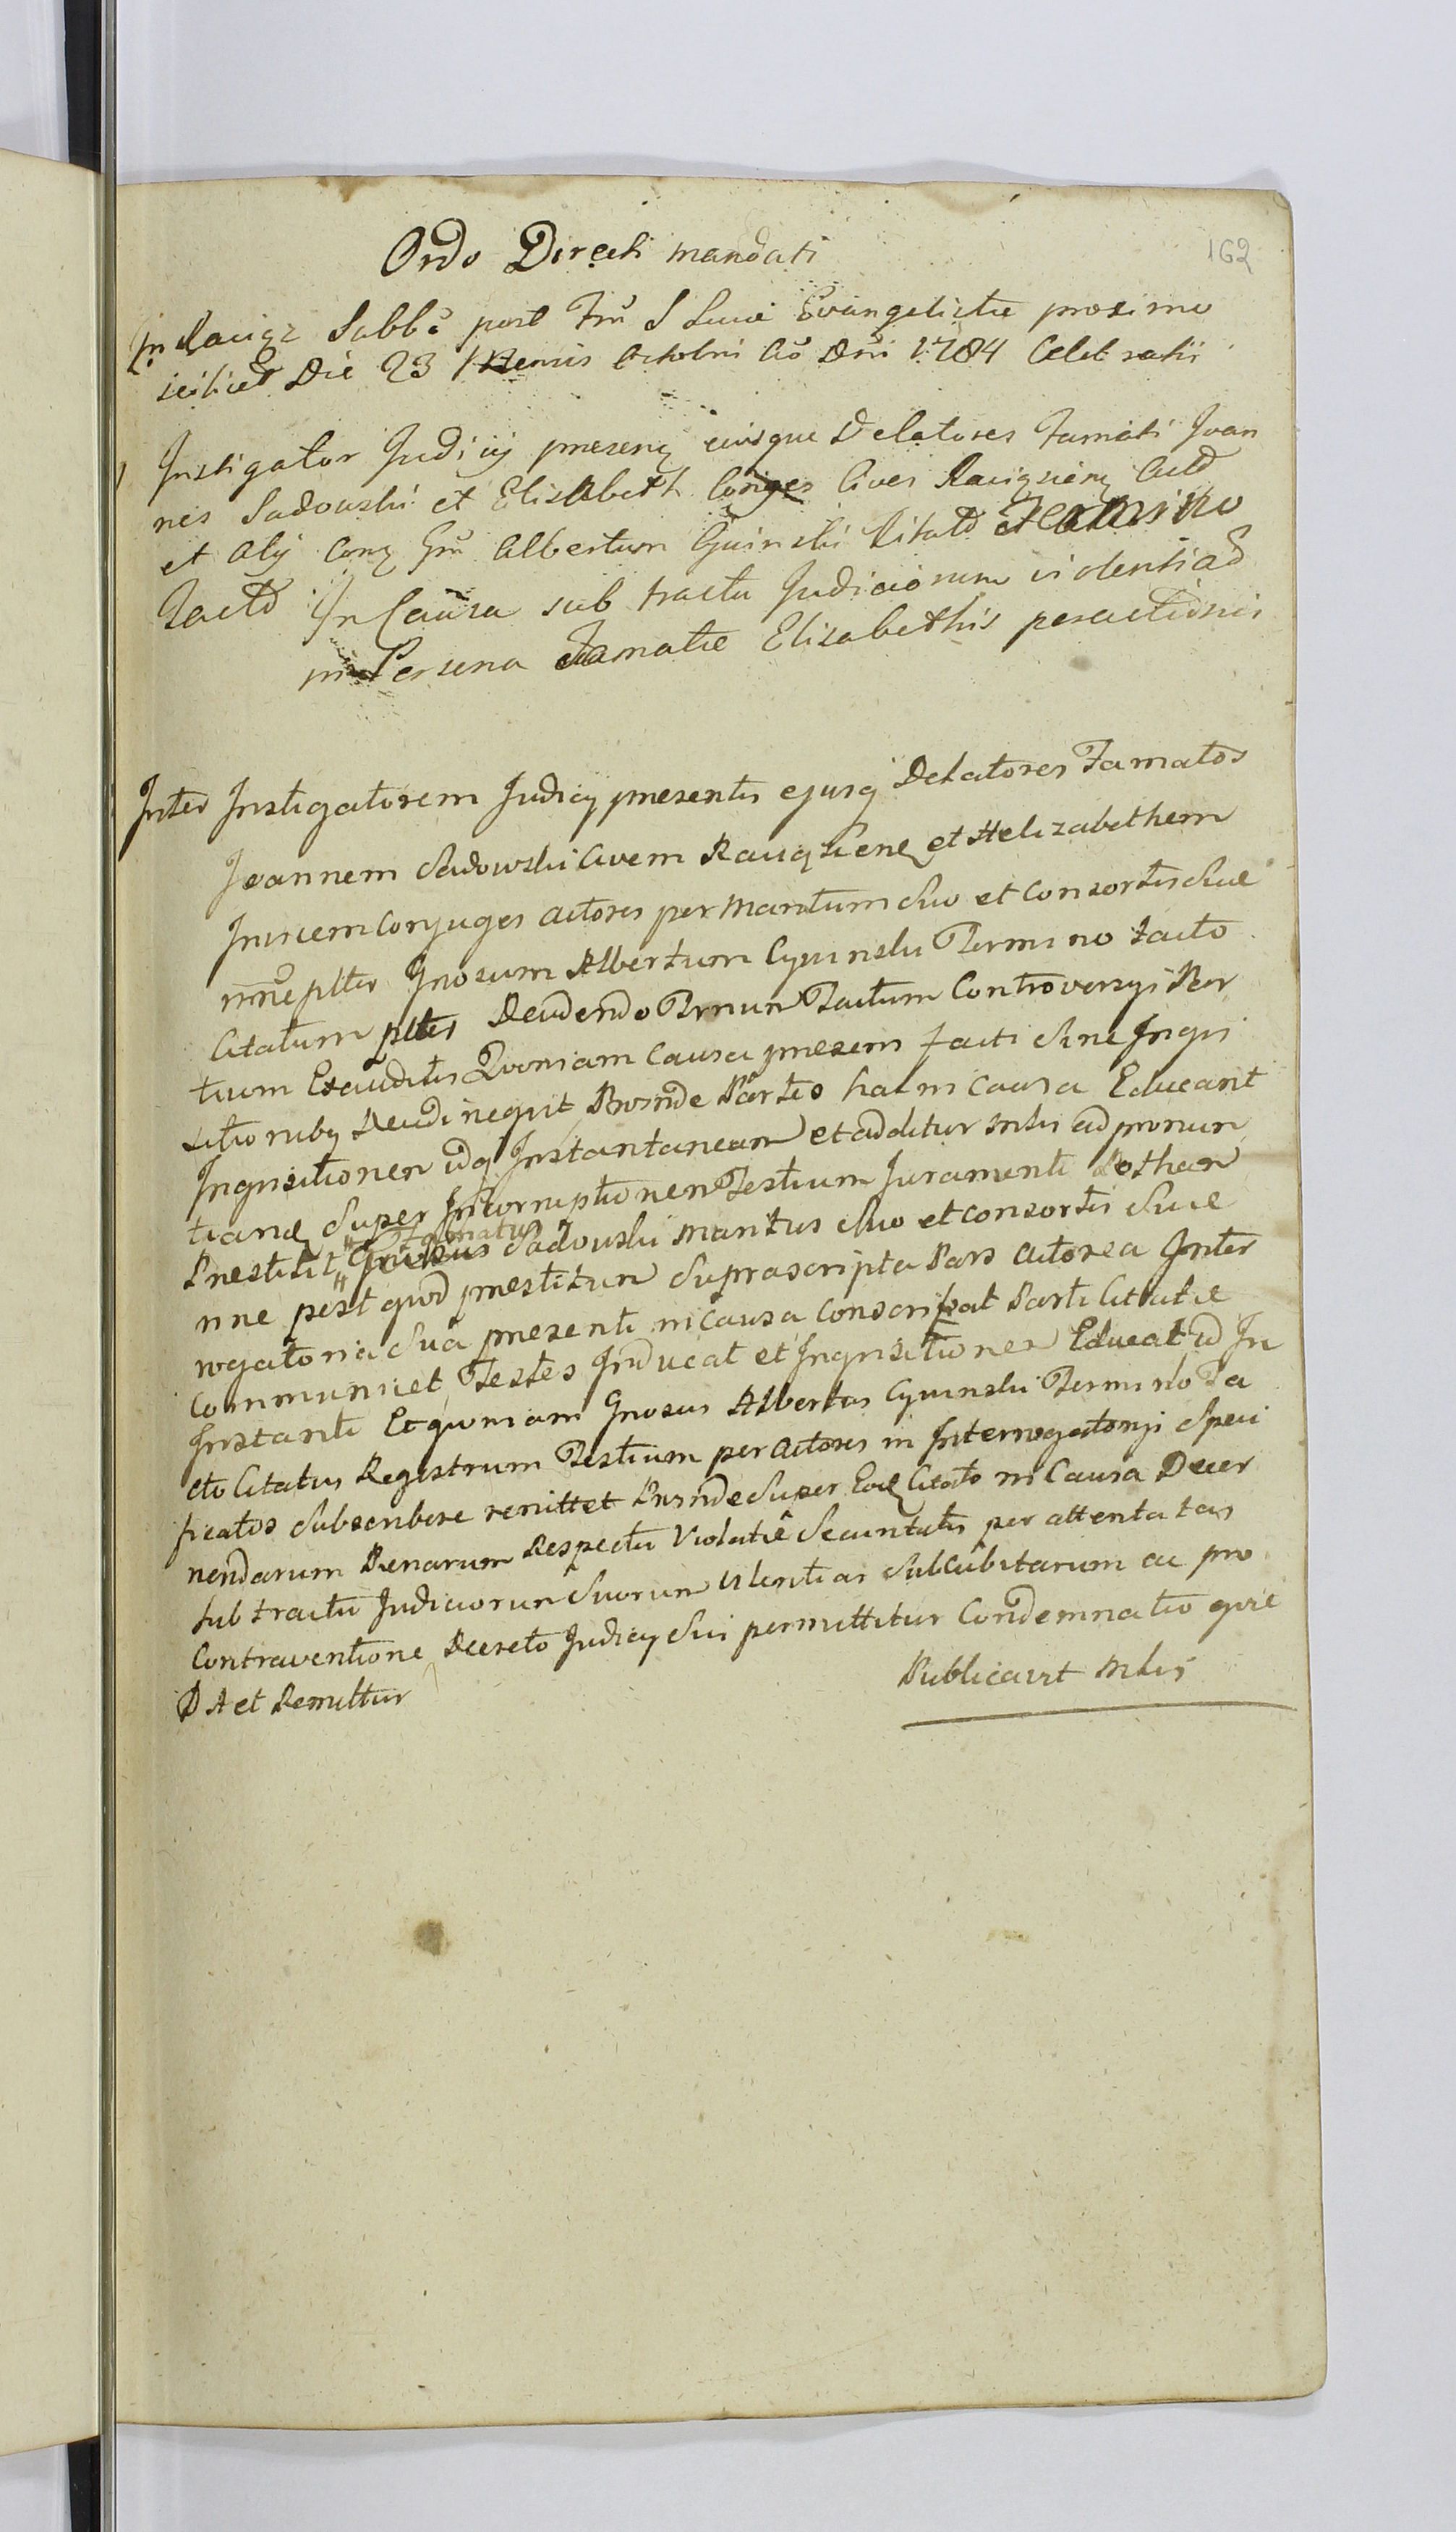 Ordo Directi mandati
162
In Raciąz Sabbo post Fm S Lucæ Evangelistæ proximo
scilicet Die 23 Mensis Octobris Ao Dni 1784 Celebrati
Instigator Judicij presenq eiusque Delatores Famati Joan
nes Sadowski et Elisabeth Coniges Cives Raciązsienq Actd
et alij Conq Gm Albertum Cywinski Citatd Termino
Tactd In Causa sub tractu Judiciorum violentiad
in Persona Famatæ Elisabethis peractionis
Inter Instigatorem Judicij presentis ejusq Delatores Famatos
Joannem Sadowski Civem Raciązsienq et Helizabethem
Invicem Conjuges actores per Maritum suo et Consortis suæ
nmne plter Gnosum Albertum Cywinski Termino tacto
Citatum plter Decidendo Prnun Tactum Controversÿs Par
tium Exauditis Quoniam Causa presens facti sine Inqui
sitionibq Decidi nequit Proinde Partes hac in Causa Educant
Inquisitionem idq Instantaneam et additur Mlri ad pronun
tiandq super Incorruptionem Testium Juramenti Rothan
Prestitit "Gnosus" Famatus Sadowski Maritus suo et consortis suæ
nne post quod prestitum suprascripta Pars actorea Inter
rogatoria sua presenti in Causa Conscribat Parti Citatæ
Communicet Testes Inducat et Inquisitiones Educat id In
Instanti Et quoniam Gnosus Albertus Cywinski Termino Ta
cto Citatus Registrum Testium per actores in Interrogatorij speci
ficatos subscribere renittet Proinde super Eodq Citato in Causa Decer
nendarum Penarum Respectu Violatæ Securitatis per attentatas
sub tractu Judiciorum suorum violentias subcubitarum ac pro
Contraventione Decreto Judicij sui permittitur Condemnatio quæ
D A et Remittur
Publicavit Mlis